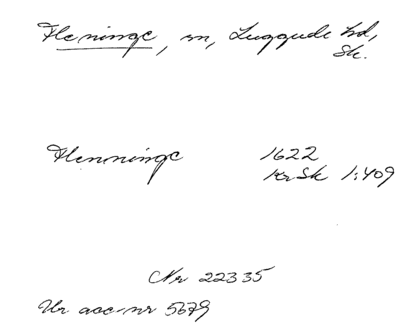 Fleninge, sn, Luggude hd,
Sk.
Flenninge 1622
KrSk 1:409
Nr 22335
Ur acc-nr 5679